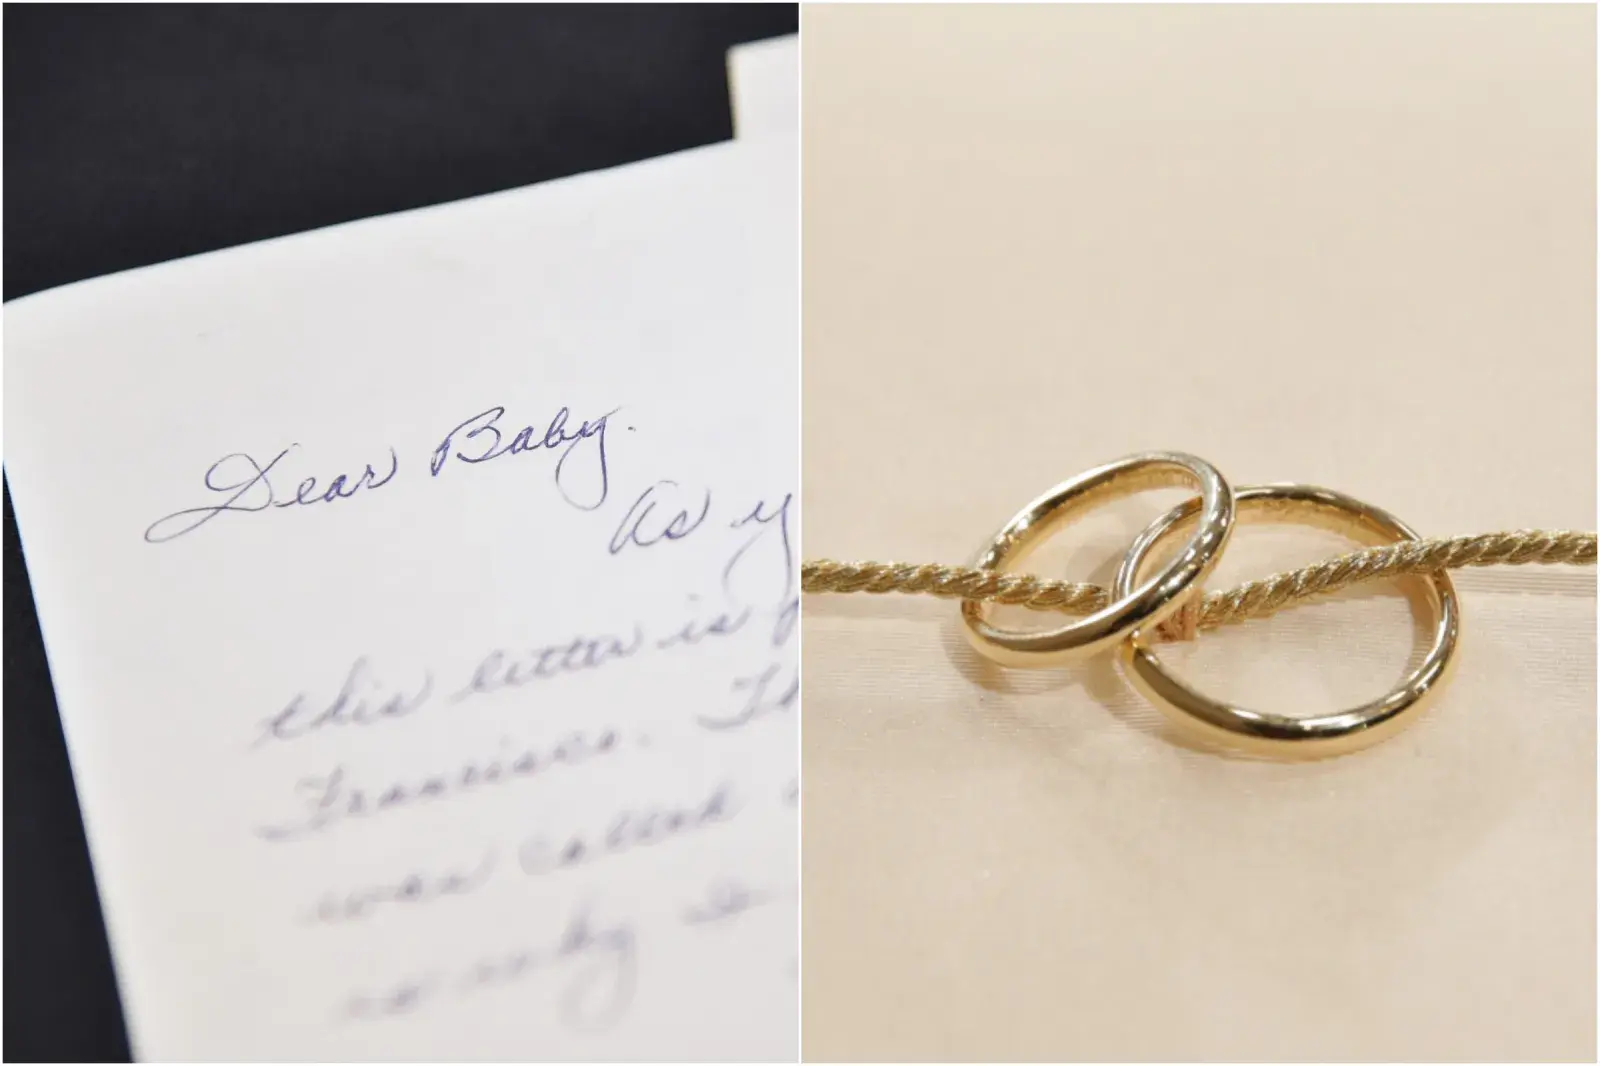 Dear Baby.
As y
this letter is
Francisco. Th
was called